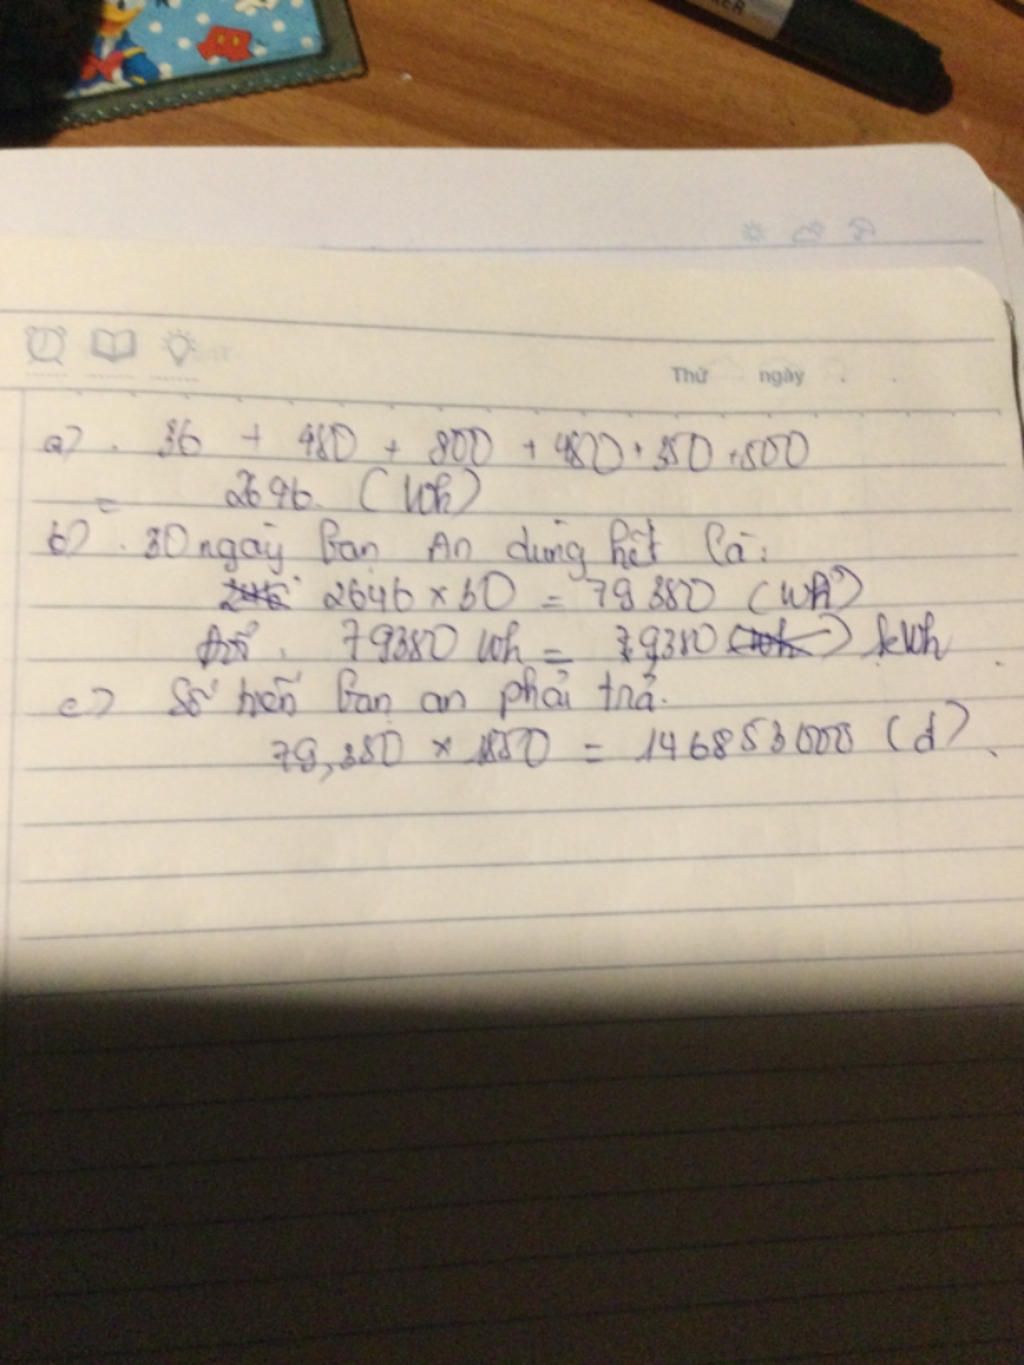 Thứ ngày
a) 36 + 480 + 800 + 480 + 350 + 500
= 2646 (Wh)
b) 30 ngày bạn An dùng hết là:
2646 x 30 = 79380 (Wh)
Đổi 79380 Wh = 79380 kWh
c) Số tiền bạn an phải trả.
79,380 x 1850 = 146853000 (đ)